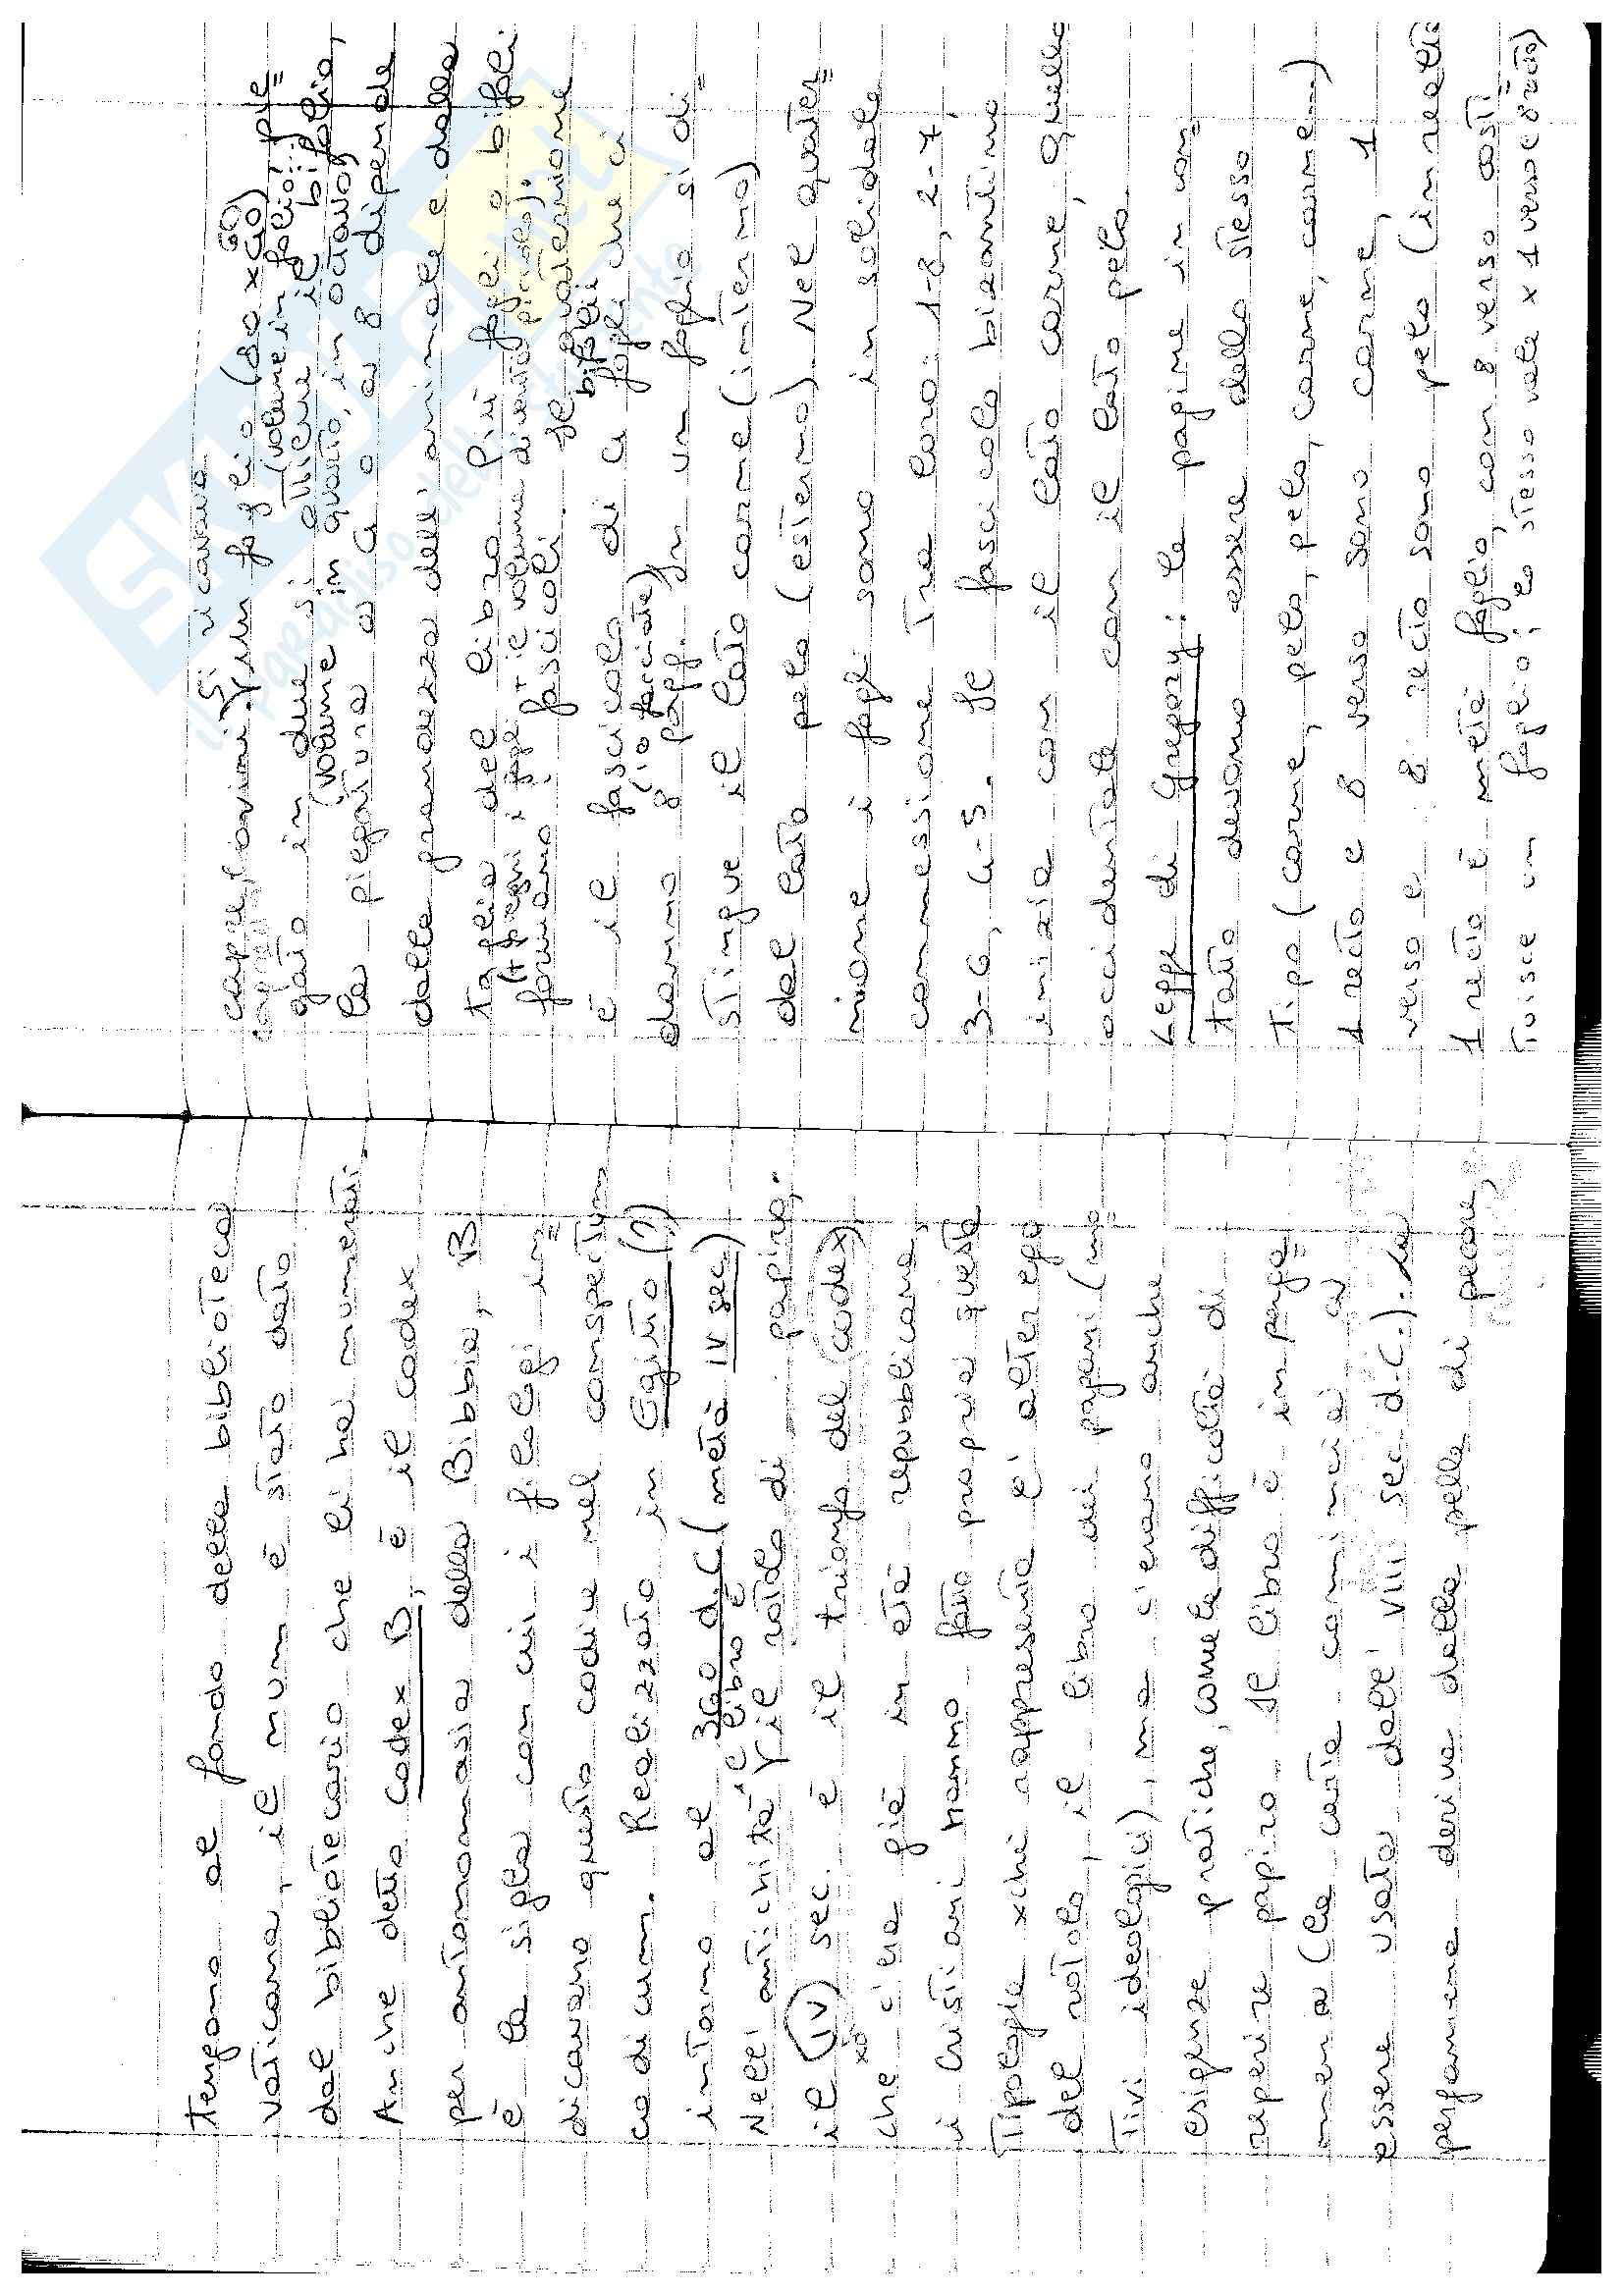 tengono al fondo della biblioteca
vaticana, il num è stato dato
dal bibliotecario che li ha numerati.
Anche detto codex B, è il codex
per antonomasia della Bibbia, B
è la sigla con cui i filologi in=
dicavano questo codice nel conspectum
codicum. Realizzato in Egitto (?)
intorno al 360 d.C. (metà IV sec)
Nell'antichità il libro è il rotolo di papiro,
il (IV) sec. è il trionfo del (codex)
xò
che c'era già in età repubblicana,
i cristiani hanno fatto propria questa
tipologia xchè rappresenta l'alter ego
del rotolo, il libro dei pagani (mo=
tivi ideologici), ma c'erano anche
esigenze pratiche, come la difficoltà di
reperire papiro. Il libro è in perga=
mena (la carta comincia a
essere usata dall'VIII sec d.C.). La
pergamena deriva dalla pelle di pecore,
capre, bovini. Si ricava un foglio (80 x 60)
60
gato in due si ottiene il bifolio,
(volume in folio); pie=
la piegatura a 4 o a 8 dipende
(volume in quarto, in ottavo)
dalla grandezza dell'animale e dalla
taglia del libro. Più fogli o bifoli
(+ pieghi i fogli + il volume diventa piccolo).
formano i fascicoli. Il quaternione
è il fascicolo di 4 fogli che ci
bifolii
danno 8 pagg. In un foglio si di=
(16 facciate)
stingue il lato carne (interno)
dal lato pelo (esterno). Nel quater=
nione i fogli sono in solidale
connessione tra loro: 1-8, 2-7,
3-6, 4-5. Il fascicolo bizantino
inizia con il lato carne, quello
occidentale con il lato pelo.
Legge di Gregory: le pagine in con=
tatto devono essere dello stesso
tipo (carne, pelo, pelo, carne, carne...)
1 recto e 8 verso sono carne, 1
verso e 8 recto sono pelo (in realtà
1 recto è metà foglio, con 8 verso costi=
tuisce un foglio; lo stesso vale x 1 verso e 8 recto)
SKUOLA.net
il paradiso dello studente